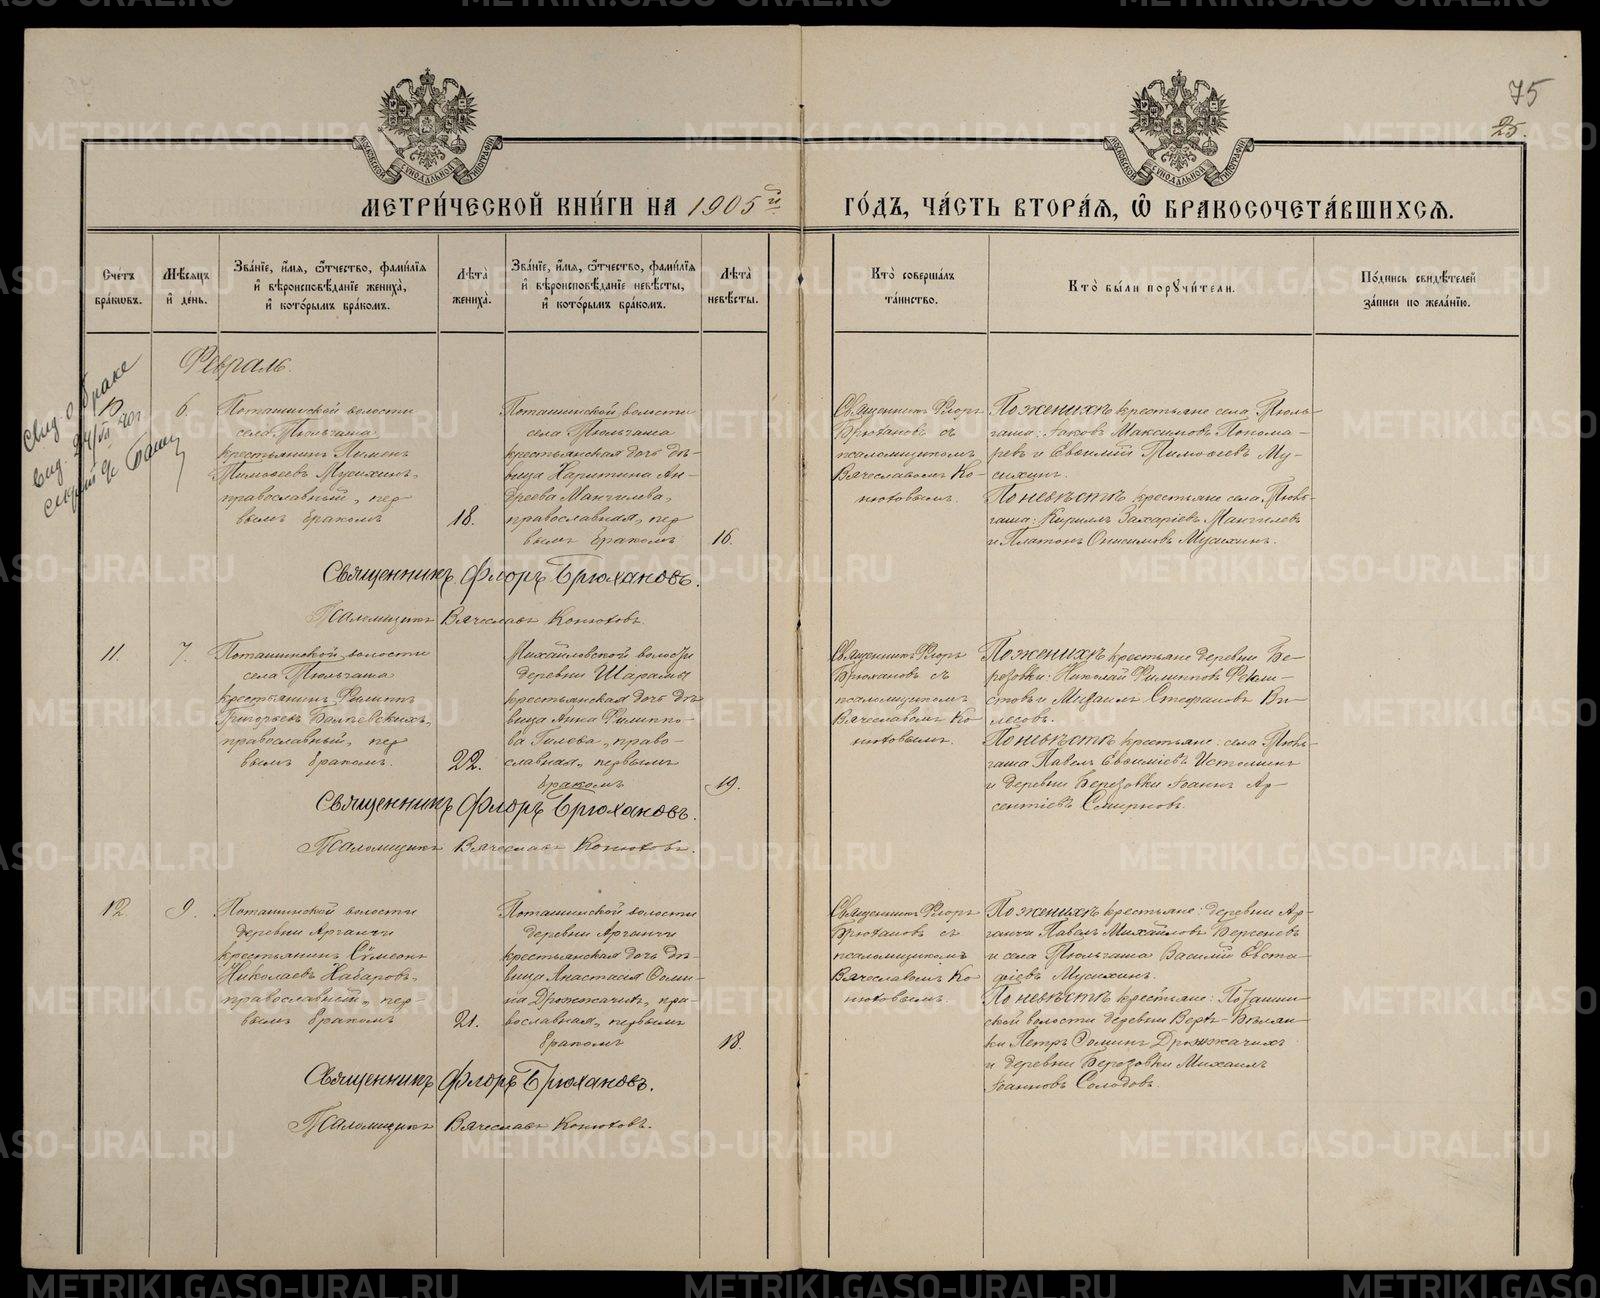 75
25.
МЕТРИ́ЧЕСКОЙ КНИ́ГИ НА 1905й ГО́ДЪ, ЧА́СТЬ ВТОРА́Я, Ѡ БРАКОСОЧЕТА́ВШИХСЯ.
Сче́тъ бра́кѡвъ.
Мѣ́сяцъ и҆ де́нь.
Зва́нїе, и҆́мя, ѻ҆́тчество, фами́лїя и҆ вѣроисповѣ́данїе жениха̀, и҆ кото́рымъ бра́комъ.
Лѣ́та жениха̀.
Зва́нїе, и҆́мя, ѻ҆́тчество, фами́лїя и҆ вѣроисповѣ́данїе невѣ́сты, и҆ кото́рымъ бра́комъ.
Лѣ́та невѣ́сты.
Кто̀ соверша́лъ та́инство.
Кто̀ бы́ли порꙋчи́тели.
По́дпись свидѣ́телей за́писи по жела́нїю.
Свид. о браке
Февраль.
10
6.
Поташинской волости
села Тюльгаша
крестьянинъ Пименъ
Тимофеевъ Мусихинъ,
православный, пер
вымъ бракомъ
18.
Поташинской волости
села Тюльгаша
крестьянская дочь дѣ-
вица Харитина Ан-
дреева Мангилева,
православная, пер
вымъ бракомъ
16.
Священникъ Флоръ
Брюхановъ съ
псаломщикомъ
Вячеславомъ Ко-
нюховымъ.
По женихѣ крестьяне села Тюль-
гаша: Іаковъ Максимовъ Понома-
ревъ и Евѳимій Тимофеевъ Му-
сихинъ.
По невѣстѣ крестьяне села Тюль-
гаша: Кириллъ Захаріевъ Мангилевъ
и Платонъ Онисимовъ Мусихинъ.
Священникъ Флоръ Брюхановъ.
Псаломщикъ Вячеславъ Конюховъ.
11.
7.
Поташинской волости
села Тюльгаша
крестьянинъ Филиппъ
Григорьевъ
православный, пер
вымъ бракомъ.
22.
Михайловской волости
деревни Шарамы
крестьянская дочь дѣ
вица Анна Филиппо-
ва Телева, право-
славная, первымъ
бракомъ
19.
Священникъ Флоръ
Брюхановъ съ
псаломщикомъ
Вячеславомъ Ко-
нюховымъ.
По женихѣ крестьяне деревни Бе-
резовки: Николай Филипповъ Феки-
стовъ и Михаилъ Стефановъ Ви-
лесовъ.
По невѣстѣ крестьяне: села Тюль-
гаша Павелъ Евѳиміевъ Истоминъ
и деревни Березовки Іоаннъ Ар-
сентіевъ Смирновъ.
Священникъ Флоръ Брюхановъ.
Псаломщикъ Вячеславъ Конюховъ.
12.
9.
Поташинской волости
деревни Арганчи
крестьянинъ Сѵмеонъ
Николаевъ Хабаровъ,
православный, пер-
вымъ бракомъ
21.
Поташинской волости
деревни Арганчи
крестьянская дочь дѣ
вица Анастасія Ѳоми-
на Дрожжачихъ, пра-
вославная, первымъ
бракомъ
18.
Священникъ Флоръ
Брюхановъ съ
псаломщикомъ
Вячеславомъ Ко-
нюховымъ.
По женихѣ крестьяне: деревни Ар-
ганчи Павелъ Михайловъ Берсеневъ
и села Тюльгаша Василій Евста-
фіевъ Мусихинъ.
По невѣстѣ крестьяне: Поташин-
ской волости деревни Верхъ-Бѣлян-
ки Петръ Ѳоминъ Дрожжачихъ
и деревни Березовки Михаилъ
Іоанновъ Солодовъ.
Священникъ Флоръ Брюхановъ.
Псаломщикъ Вячеславъ Конюховъ.
METRIKI.GASO-URAL.RU